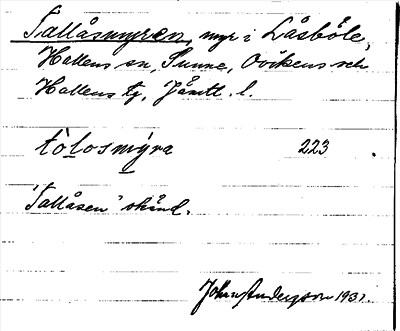 Tallåsmyren, myr i Låsböle,
Hallens sn, Sunne, Ovikens och
Hallens tg, Jämtl. l.
tòlosmýra 223
"Tallåsen" okänd.
Johan Anderson 1931.